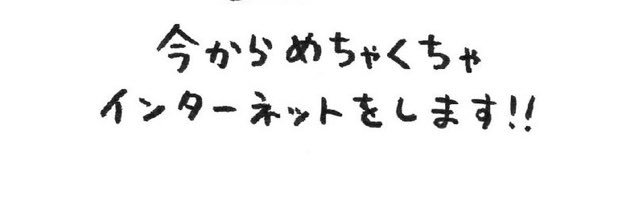 今からめちゃくちゃ
インターネットをします!!